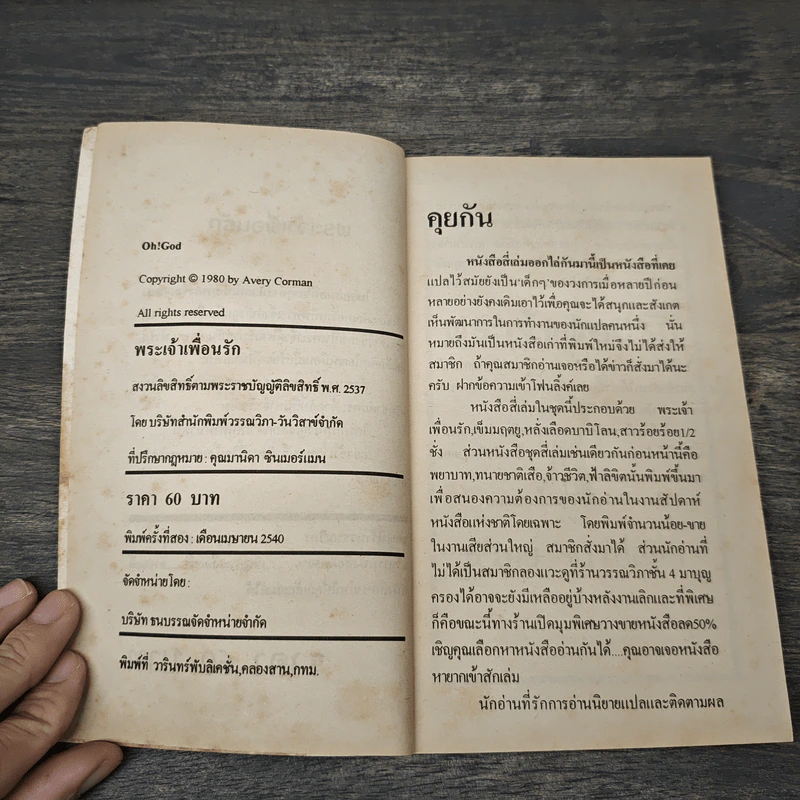 Oh!God
Copyright © 1980 by Avery Corman
All rights reserved
พระเจ้าเพื่อนรัก
สงวนลิขสิทธิ์ตามพระราชบัญญัติลิขสิทธิ์ พ.ศ. 2537
โดย บริษัทสำนักพิมพ์วรรณวิภา-วันวิสาข์จำกัด
ที่ปรึกษากฎหมาย : คุณมานิดา ซินเมอร์แมน
ราคา 60 บาท
พิมพ์ครั้งที่สอง : เดือนเมษายน 2540
จัดจำหน่ายโดย :
บริษัท ธนบรรณจัดจำหน่ายจำกัด
พิมพ์ที่ วารินทร์พับลิเคชั่น,คลองสาน,กทม.
คุยกัน
หนังสือสี่เล่มออกไล่กันมานี้เป็นหนังสือที่เคย
แปลไว้สมัยยังเป็น'เด็กๆ'ของวงการเมื่อหลายปีก่อน
หลายอย่างยังคงเดิมเอาไว้เพื่อคุณจะได้สนุกและสังเกต
เห็นพัฒนาการในการทำงานของนักแปลคนหนึ่ง นั่น
หมายถึงมันเป็นหนังสือเก่าที่พิมพ์ใหม่จึงไม่ได้ส่งให้
สมาชิก ถ้าคุณสมาชิกอ่านเจอหรือได้ข่าวก็สั่งมาได้นะ
ครับ ฝากข้อความเข้าโฟนลิ้งค์เลย
หนังสือสี่เล่มในชุดนี้ประกอบด้วย พระเจ้า
เพื่อนรัก,เข็มมฤตยู,หลั่งเลือดบาบิโลน,สาวร้อยร้อย1/2
ชั่ง ส่วนหนังสือชุดสี่เล่มเช่นเดียวกันก่อนหน้านี้คือ
พยาบาท,ทนายชาติเสือ,จ้าวชีวิต,ฟ้าลิขิตนั้นพิมพ์ขึ้นมา
เพื่อสนองความต้องการของนักอ่านในงานสัปดาห์
หนังสือแห่งชาติโดยเฉพาะ โดยพิมพ์จำนวนน้อย-ขาย
ในงานเสียส่วนใหญ่ สมาชิกสั่งมาได้ ส่วนนักอ่านที่
ไม่ได้เป็นสมาชิกลองแวะดูที่ร้านวรรณวิภาชั้น 4 มาบุญ
ครองได้อาจจะยังมีเหลืออยู่บ้างหลังงานเลิกและที่พิเศษ
ก็คือขณะนี้ทางร้านเปิดมุมพิเศษวางขายหนังสือลด50%
เชิญคุณเลือกหาหนังสืออ่านกันได้....คุณอาจเจอหนังสือ
หายากเข้าสักเล่ม
นักอ่านที่รักการอ่านนิยายแปลและติดตามผล